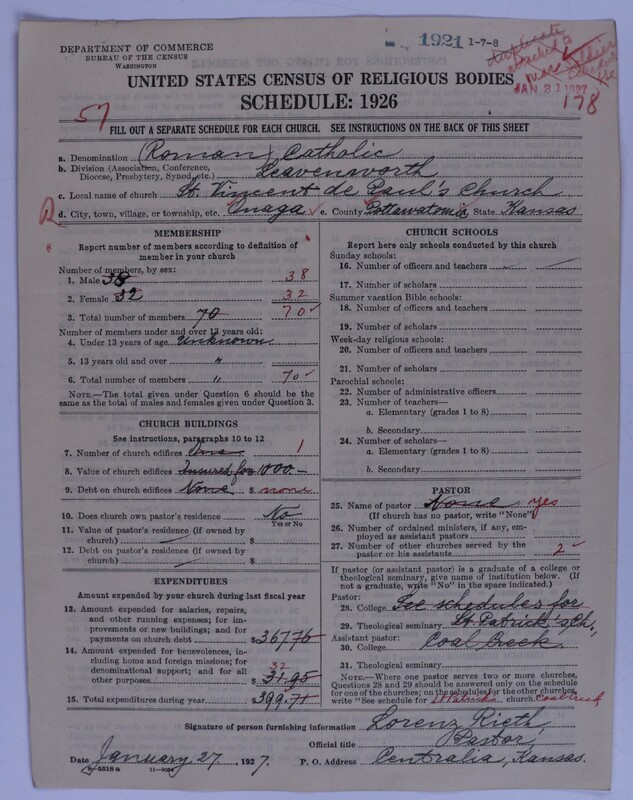 1921 1-7-8
DEPARTMENT OF COMMERCE
BUREAU OF THE CENSUS
WASHINGTON
Duplicate
attached to
JAN 31 1927
178
UNITED STATES CENSUS OF RELIGIOUS BODIES
SCHEDULE: 1926
57
FILL OUT A SEPARATE SCHEDULE FOR EACH CHURCH. SEE INSTRUCTIONS ON THE BACK OF THIS SHEET
a. Denomination (Roman) Catholic
b. Division (Association, Conference, Diocese, Presbytery, Synod, etc.) Leavenworth
c. Local name of church St. Vincent de Paul's Church
d. City, town, village, or township, etc. Onaga e. County Pottawatomie State Kansas
MEMBERSHIP
Report number of members according to definition of
member in your church
Number of members, by sex:
1. Male 38 38
2. Female 32 32
3. Total number of members 70 70
Number of members under and over 13 years old:
4. Under 13 years of age Unknown
5. 13 years old and over "
6. Total number of members " 70
NOTE.—The total given under Question 6 should be the
same as the total of males and females given under Question 3.
CHURCH BUILDINGS
See instructions, paragraphs 10 to 12
7. Number of church edifices One 1
8. Value of church edifices Insured for 1000.—
9. Debt on church edifices None $ none
10. Does church own pastor's residence No
Yes or No
11. Value of pastor's residence (if owned by
church) $
12. Debt on pastor's residence (if owned by
church) $
EXPENDITURES
Amount expended by your church during last fiscal year
13. Amount expended for salaries, repairs,
and other running expenses; for im-
provements or new buildings; and for
payments on church debt $ 367.76
14. Amount expended for benevolences,
including home and foreign missions; for
denominational support; and for all
other purposes $ 31.95
32
15. Total expenditures during year 399.71
CHURCH SCHOOLS
Report here only schools conducted by this church
Sunday schools:
16. Number of officers and teachers
17. Number of scholars
Summer vacation Bible schools:
18. Number of officers and teachers
19. Number of scholars
Week-day religious schools:
20. Number of officers and teachers
21. Number of scholars
Parochial schools:
22. Number of administrative officers
23. Number of teachers—
a. Elementary (grades 1 to 8)
b. Secondary
24. Number of scholars—
a. Elementary (grades 1 to 8)
b. Secondary
PASTOR
25. Name of pastor None yes
(If church has no pastor, write "None")
26. Number of ordained ministers, if any, em-
ployed as assistant pastors
27. Number of other churches served by the
pastor or his assistants 2
If pastor (or assistant pastor) is a graduate of a college or
theological seminary, give name of institution below. (If
not a graduate, write "No" in the space indicated.)
Pastor:
28. College See schedules for
29. Theological seminary St Patrick's ch.,
Assistant pastor:
30. College Coal Creek.
31. Theological seminary
NOTE.—Where one pastor serves two or more churches,
Questions 28 and 29 should be answered only on the schedule
for one of the churches; on the schedules for the other churches,
write "See schedule for St Patricks church. Coal Creek
Signature of person furnishing information Lorenz Rieth
Official title Pastor,
Date January 27, 1927. P. O. Address Centralia, Kansas.
8-5518 a